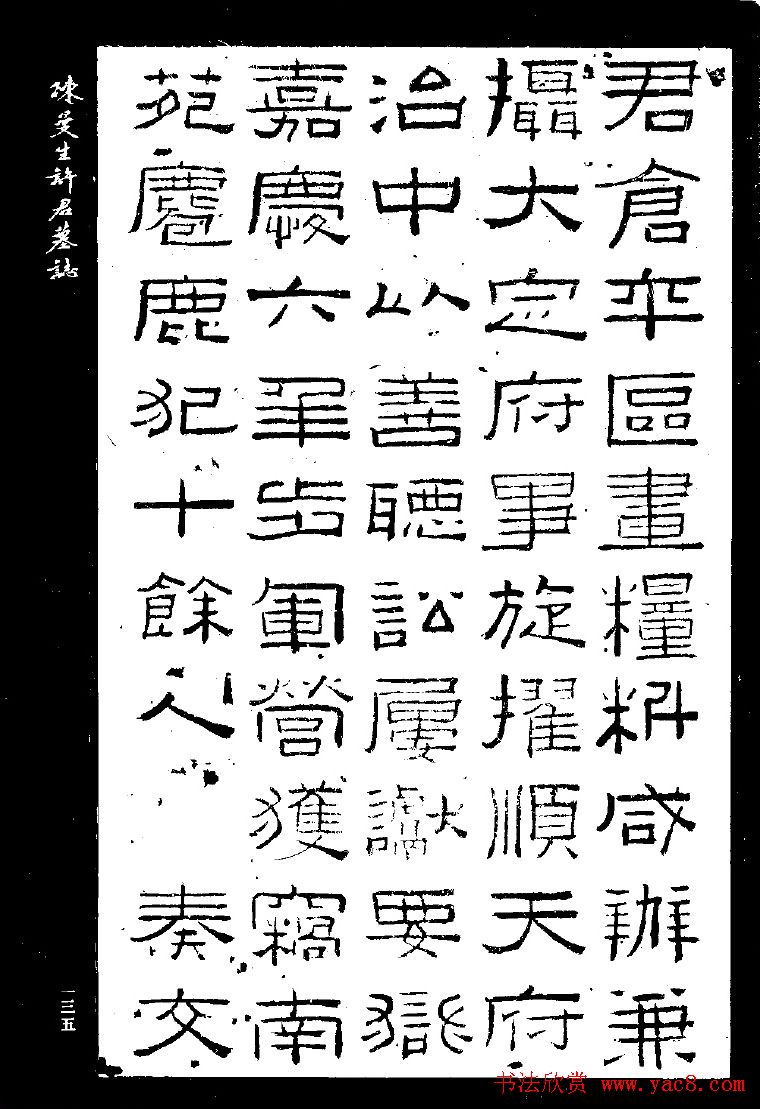 君倉卒區畫糧料咸辦兼
攝大定府事旋擢順天府
治中以善聽訟屢讞要獄
嘉慶六年步軍營獲竊南
苑麅鹿犯十餘人 奏交
陳曼生許君墓誌
一三五
书法欣赏 www.yac8.com